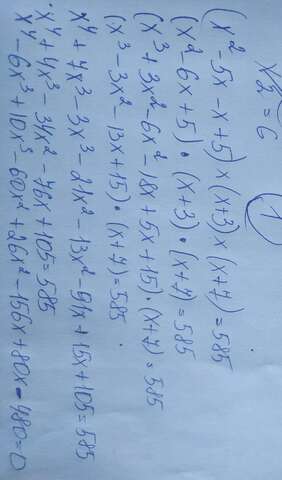 x₂ = 6 1
(x² - 5x - x + 5) × (x+3) × (x+7) = 585
(x² - 6x + 5) · (x+3) · (x+7) = 585
(x³ + 3x² - 6x² - 18x + 5x + 15) · (x+7) = 585
(x³ - 3x² - 13x + 15) · (x+7) = 585
x⁴ + 7x³ - 3x³ - 21x² - 13x² - 91x + 15x + 105 = 585
x⁴ + 4x³ - 34x² - 76x + 105 = 585
x⁴ - 6x³ + 10x³ - 60x² + 26x² - 156x + 80x - 480 = 0